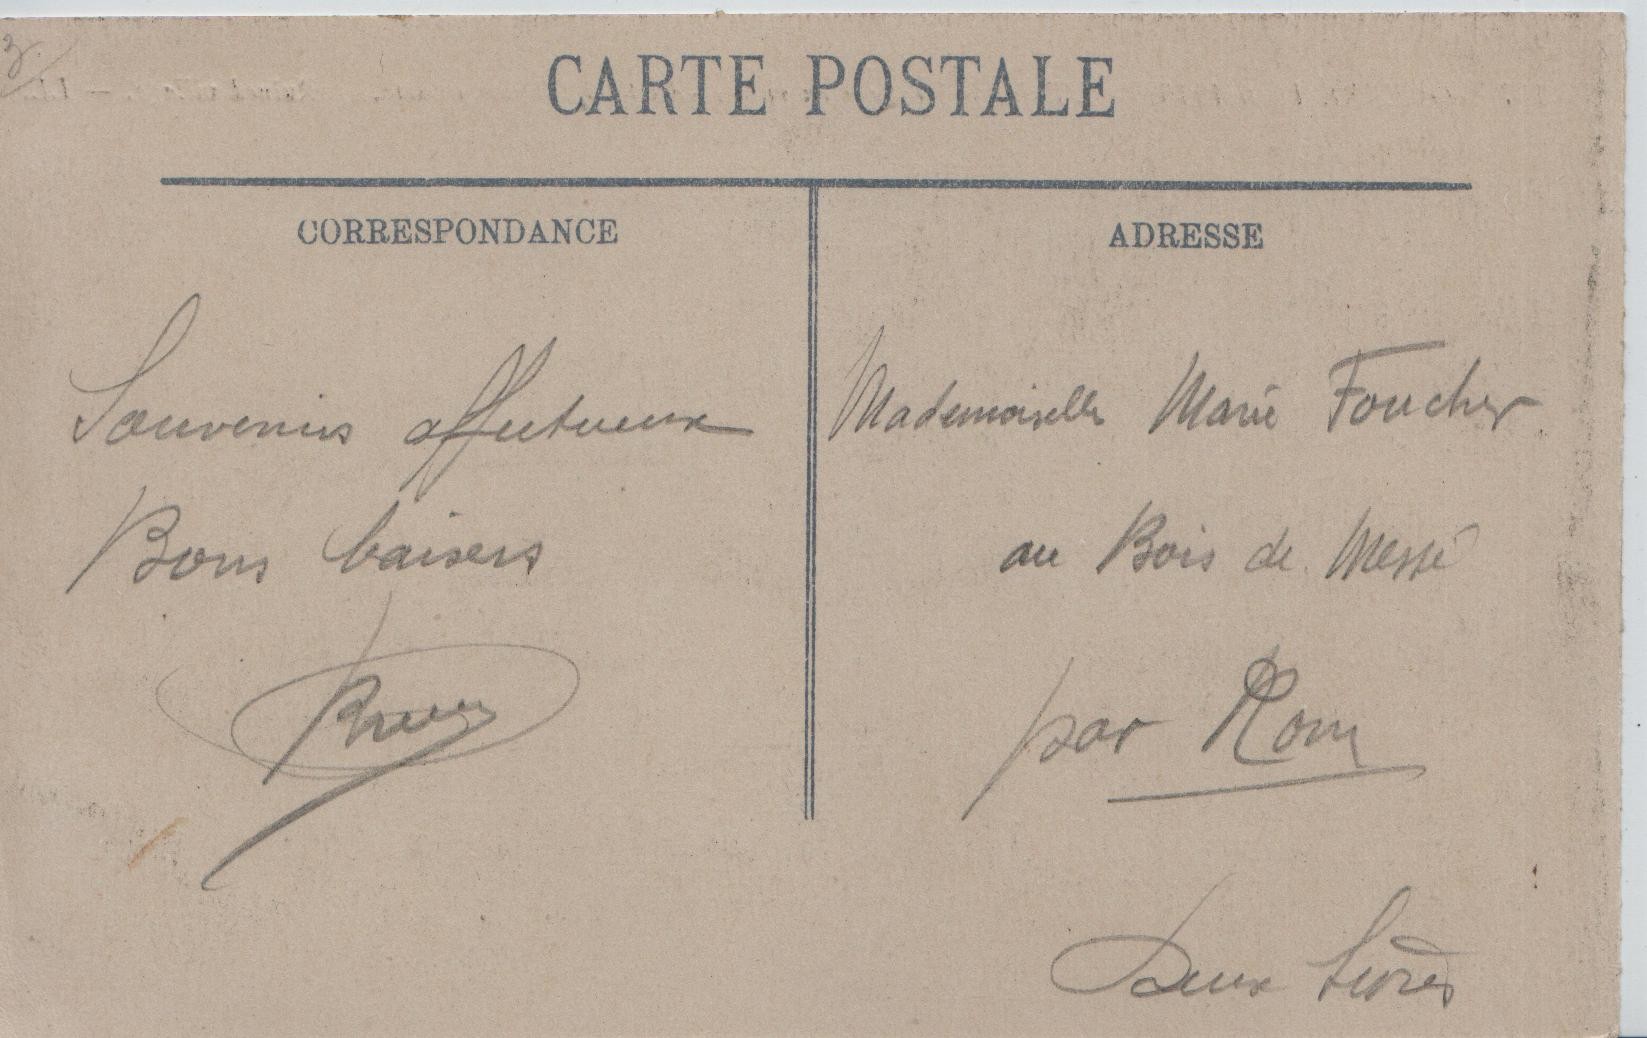 CARTE POSTALE
CORRESPONDANCE
Souvenirs affectueux
Bons baisers
ADRESSE
Mademoiselle Marie Foucher
au Bois de Messé
par Rom
Deux Sèvres